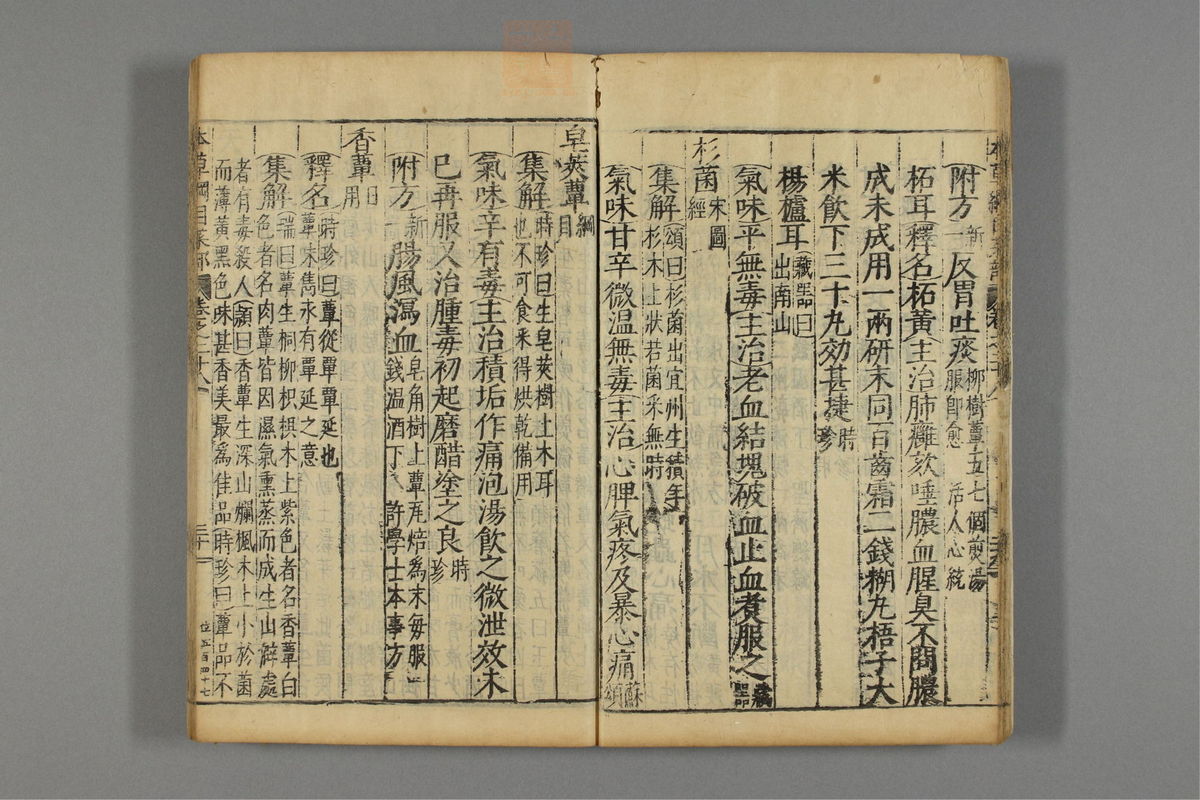 附方新一反胃吐痰柳樹蕈五七個煎湯服即愈 活人心統
柘耳釋名柘黃主治肺癰欬唾膿血腥臭不問膿
成未成用一兩研末同百齒霜二錢糊丸梧子大
米飲下三十丸効甚捷時珍
楊櫨耳藏器曰出南山
氣味平無毒主治老血結塊破血止血煮服之藏器
杉菌宋圖經
集解頌曰杉菌出宜州生積年杉木上狀若菌采無時
氣味甘辛微温無毒主治心脾氣疼及暴心痛蘇頌
皂莢蕈綱目
集解時珍曰生皂莢樹上木耳也不可食采得烘乾備用
氣味辛有毒主治積垢作痛泡湯飲之微泄效未
已再服又治腫毒初起磨醋塗之良時珍
附方新一腸風瀉血皂角樹上蕈瓦焙為末每服一錢温酒下 許學士本事方
香蕈日用
釋名時珍曰蕈從覃覃延也蕈味雋永有覃延之意
集解瑞曰蕈生桐柳枳椇木上紫色者名香蕈白色者名肉蕈皆因濕氣熏蒸而成生山僻處
者有毒殺人頴曰香蕈生深山爛楓木上小於菌
而薄黃黑色味甚香美最為佳品時珍曰蕈品不
本草綱目菜部 卷之二十八
三十一
位五百四十七